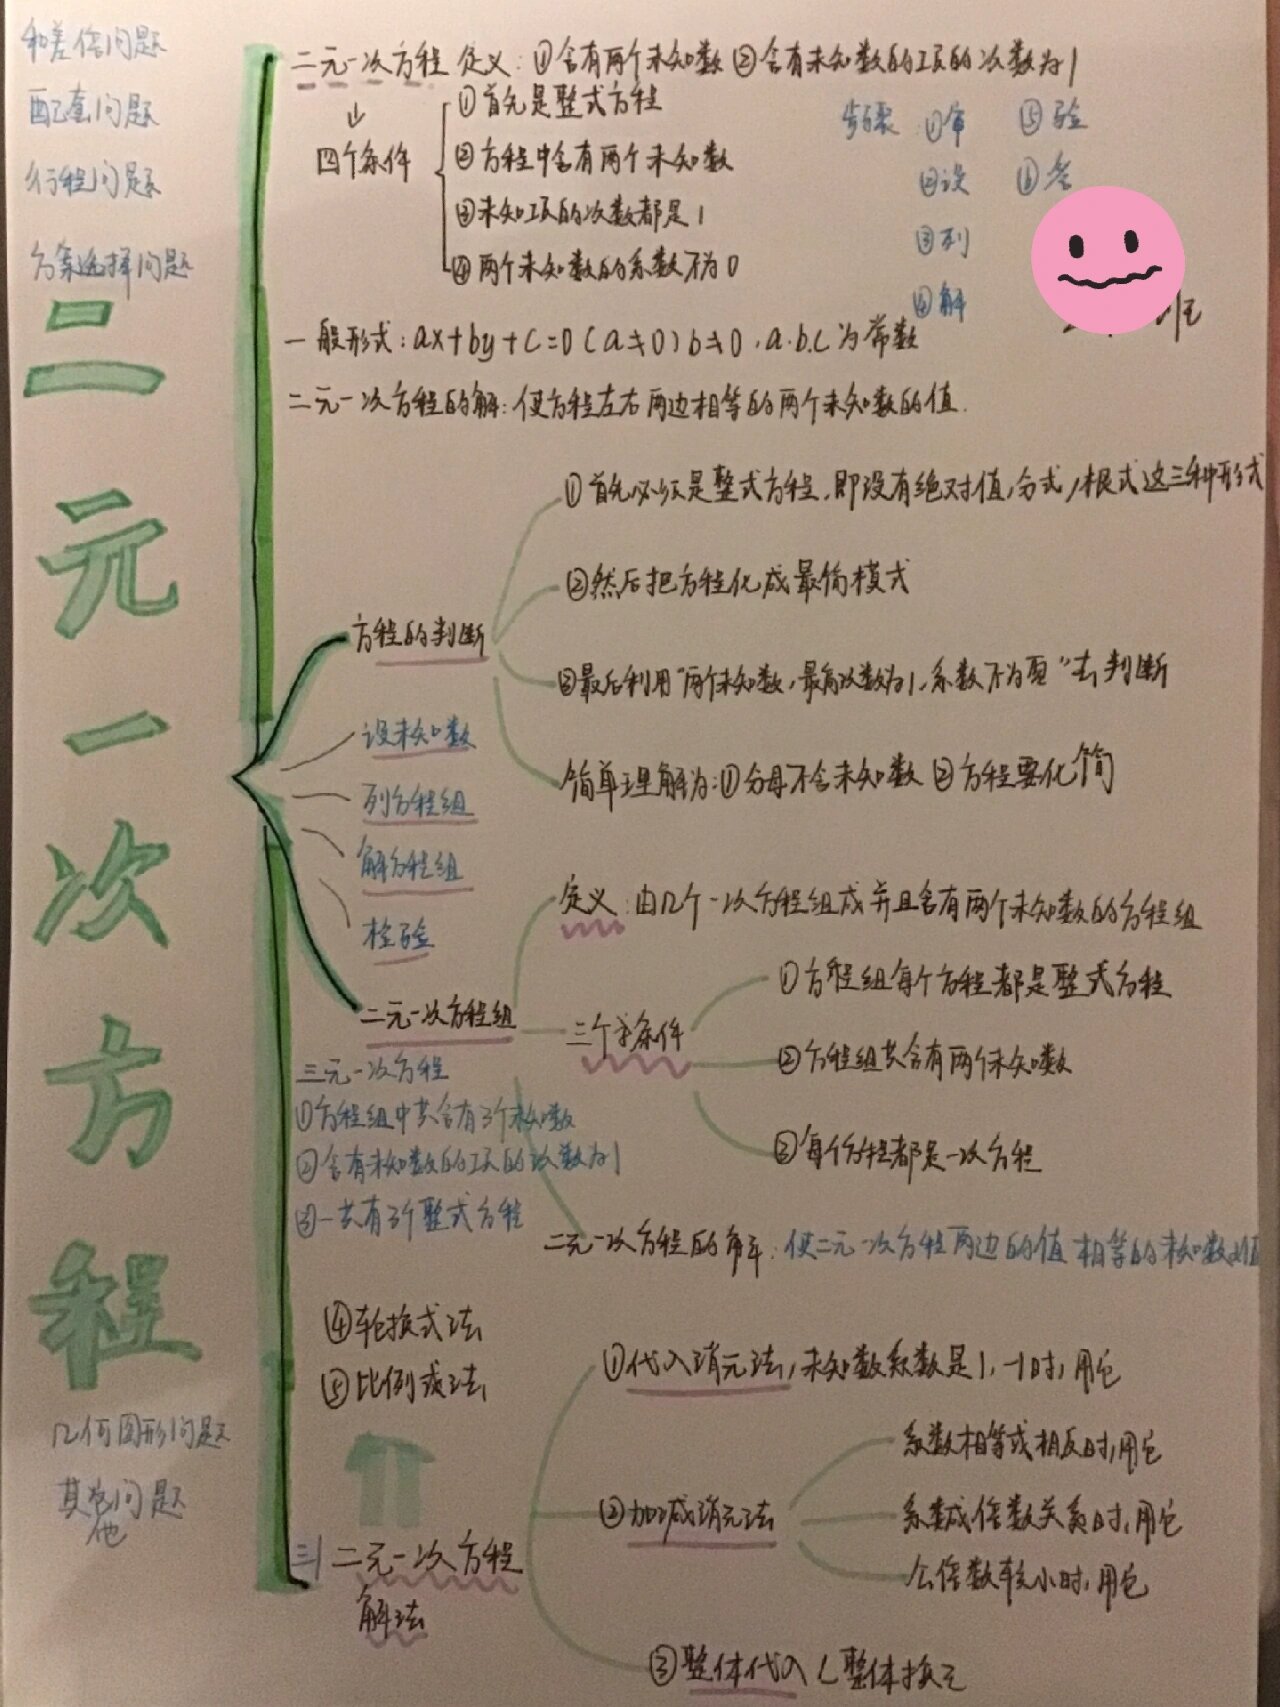 和差倍问题
配套问题
行程问题
方案选择问题
二元一次方程
几何图形问题
其它问题
他
二元一次方程 定义：①含有两个未知数 ②含有未知数的项的次数为1
四个条件
①首先是整式方程
②方程中含有两个未知数
③未知项的次数都是1
④两个未知数的系数不为0
步骤 ①审 ⑤验
②设 ⑥答
③列
④解
班
一般形式：ax+by+c=0（a≠0）b≠0，a.b.c为常数
二元一次方程的解：使方程左右两边相等的两个未知数的值.
方程的判断
①首先必须是整式方程，即没有绝对值，分式，根式这三种形式
②然后把方程化成最简模式
③最后利用“两个未知数，最高次数为1，系数不为0”去判断
简单理解为：①分母不含未知数 ②方程要化简
设未知数
列方程组
解方程组
检验
二元一次方程组
定义：由几个一次方程组成并且含有两个未知数的方程组
三个条件
①方程组每个方程都是整式方程
②方程组共含有两个未知数
③每个方程都是一次方程
二元一次方程的解：使二元一次方程两边的值相等的未知数的值
三元一次方程
①方程组中共含有3个未知数
②含有未知数的项的次数为1
③一共有3个整式方程
④轮换式法
⑤比例式法
三 二元一次方程
解法
①代入消元法，未知数系数是1，-1时，用它
②加减消元法
系数相等或相反时，用它
系数成倍数关系时，用它
公倍数较小时，用它
③整体代入（整体换元